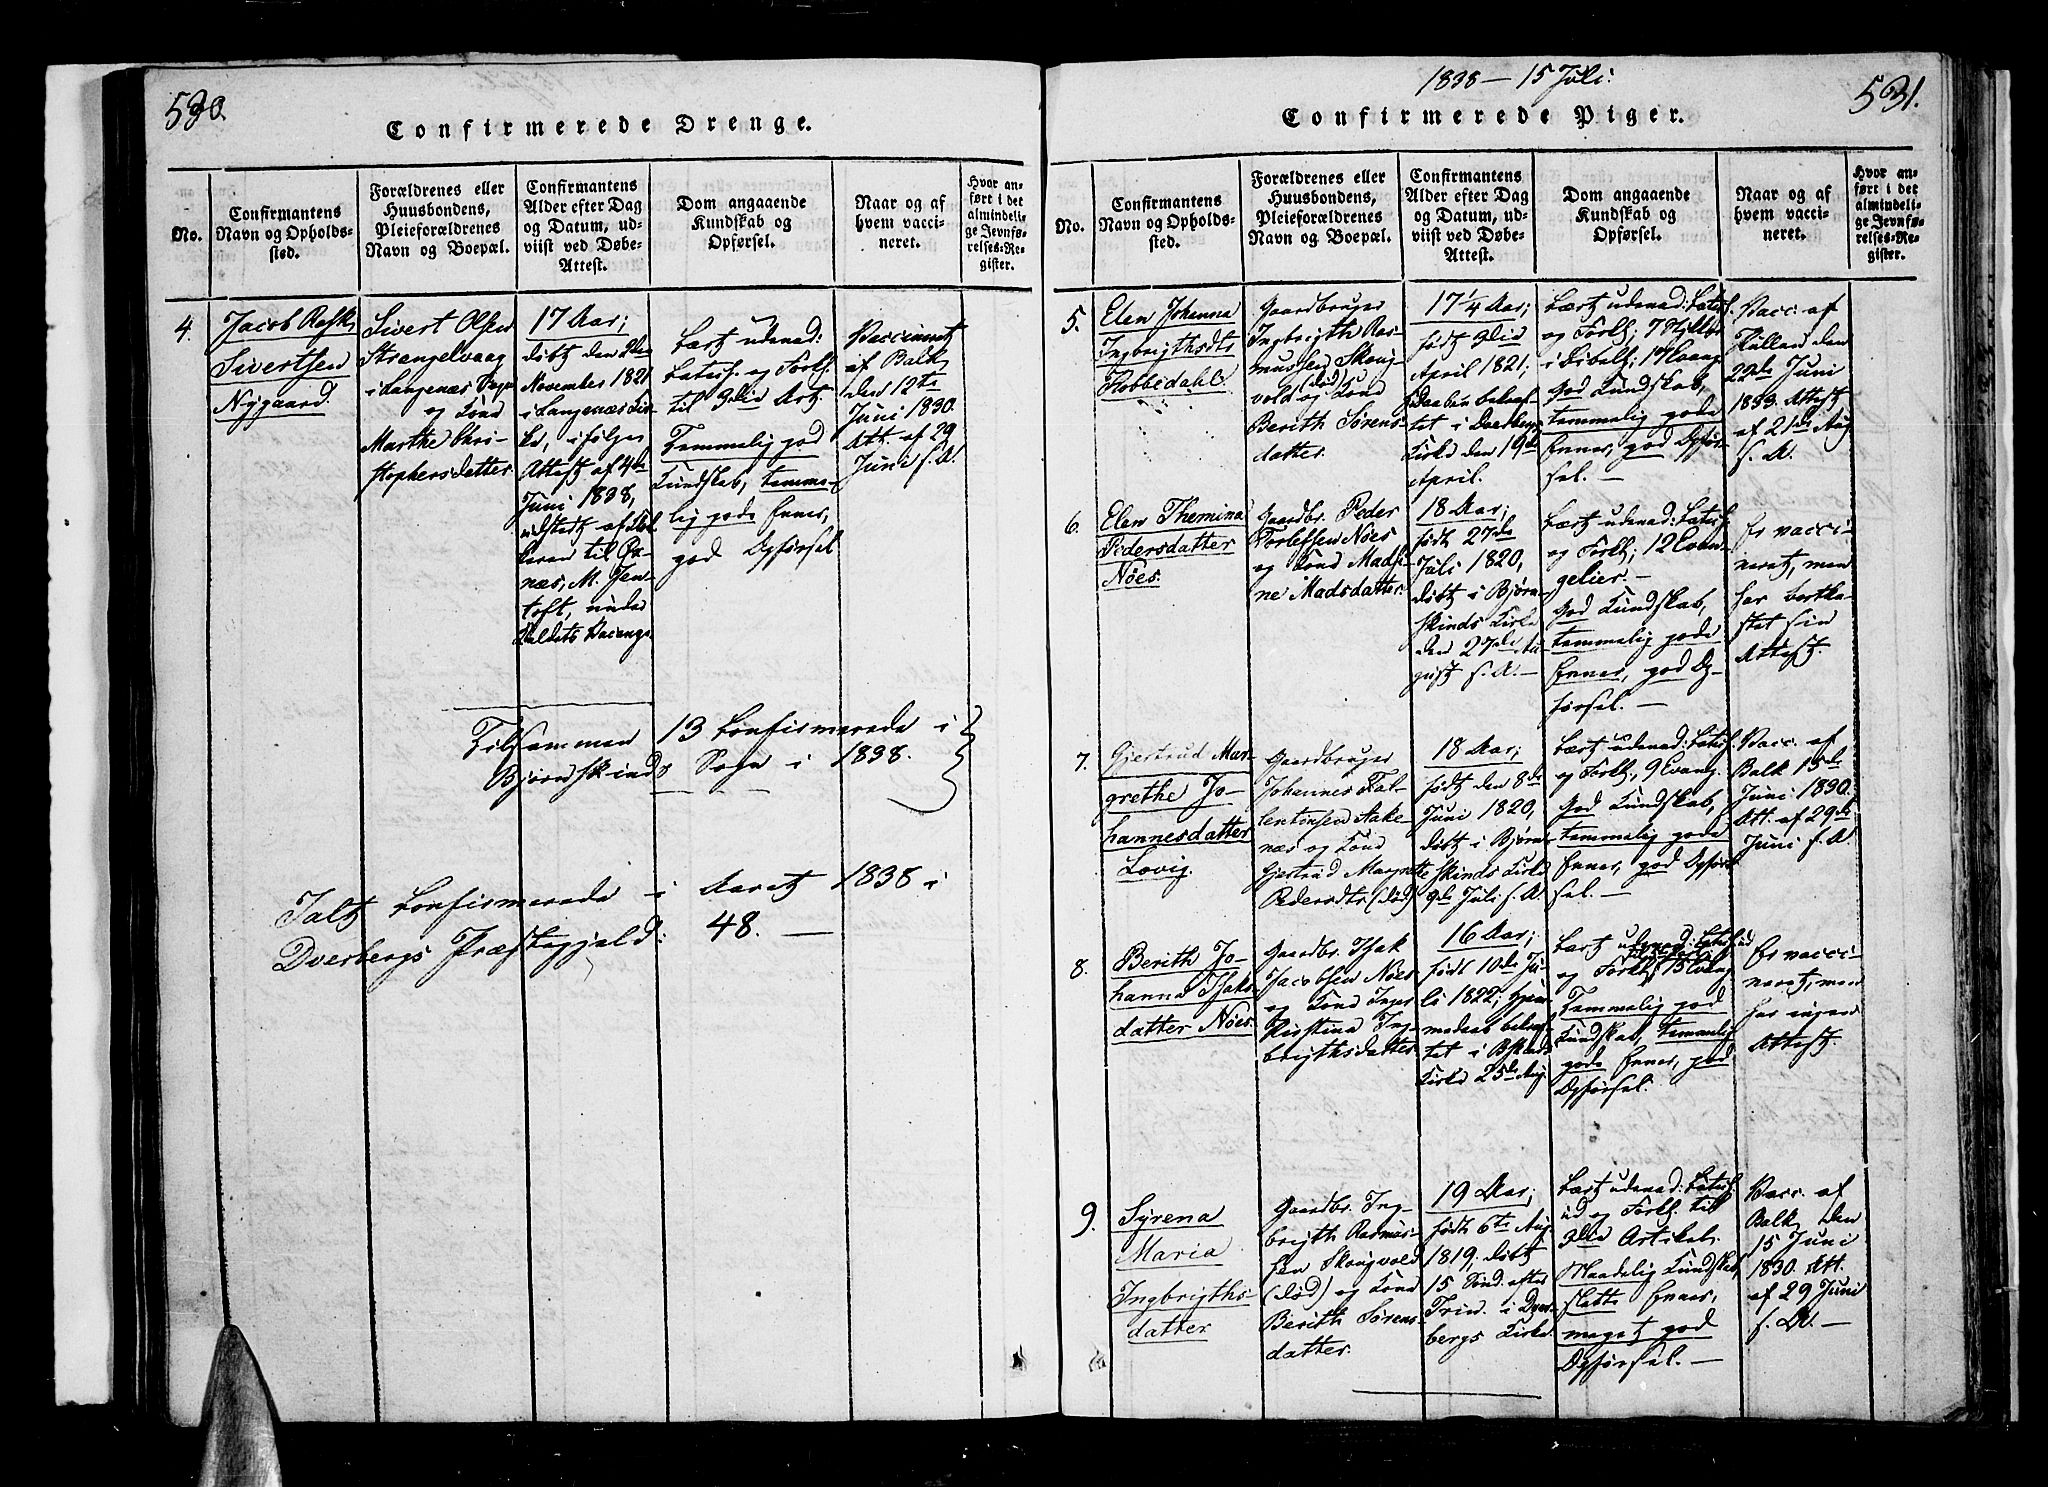 530.
Confirmerede Drenge.
No.
Confirmantens
Navn og Opholds-
sted.
Forældrenes eller
Huusbondens,
Pleieforældrenes
Navn og Boepæl.
Confirmantens
Alder efter Dag
og Datum, ud-
viist ved Døbe-
Attest.
Dom angaaende
Kundskab og
Opførsel.
Naar og af
hvem vacci-
neret.
Hvor an-
ført i det
almindeli-
ge Jevnfø-
relses-Re-
gister.
4.
Jacob
Sivertsen
Nygaard.
Sivert Olsen
Strengelvaag
i Langenæs
og Kone
Marthe Chri-
stophersdatter
17 Aar;
døbt den 2den
November 1821
i Langenæs Kir-
ke, ifølge
Attest af 4de
Juni 1838,
udstedt af
til
næs, M. Jen-
toft, under
Kaldets Vacance.
Lært udenad:
Catech. og Forkl.
til 3die Art.
Temmelig god
Kundskab, temme-
lig gode Evner,
god Opførsel
Vaccineret
af Balk
den 12te
Juni 1830.
Att. af 29
Juni s. A.
Tilsammen 13 Confirmerede i
Bjørnskinds Sogn i 1838.
Ialt Confirmerede i Aaret 1838 i
Dverbergs Præstegjeld: 48. —
1838 — 15 Juli.
531.
Confirmerede Piger.
No.
Confirmantens
Navn og Opholds-
sted.
Forældrenes eller
Huusbondens,
Pleieforældrenes
Navn og Boepæl.
Confirmantens
Alder efter Dag
og Datum, ud-
viist ved Døbe-
Attest.
Dom angaaende
Kundskab og
Opførsel.
Naar og af
hvem vacci-
neret.
Hvor an-
ført i det
almindeli-
ge Jevnfø-
relses-Re-
gister.
5.
Elen Johanna
Ingbrigthsdtr
Kobbedahl.
Gaardbruger
Ingbrigth Ras-
mussen Skoug-
vold (død) og Kone
Berith Sørens-
datter.
17 1/4 Aar;
født 3die
April 1821;
Daaben bekræf-
tet i Dverbergs
Kirke den 19de
April.
Lært udenad: Catech.
og Forkl;
i Bibelh; 17 Evang.
God Kundskab,
temmelig gode
Evner, god Opfør-
sel. —
Vacc. af
den
22de Juni
1833. Attest
af 21de Aug
s. A.
6.
Elen Themina
Pedersdatter
Nöes.
Gaardbr. Peder
Torlefsen Nöes
og Kone Madsi-
ne Madsdatter.
18 Aar;
født 27de
Juli 1820,
døbt i Bjørn-
skinds Kirke
den 27de Au-
gust s. A. —
Lært udenad: Catech.
og Forkl; 12 Evan-
gelier. —
God Kundskab,
temmelig gode
Evner, god Op-
førsel. —
Er vacci-
neret, men
har bortka-
stet sin
Attest.
7.
Gjertrud Mar-
grethe Jo-
hannesdatter
Lovig.
Gaardbruger
Johannes Fal-
lentinsen Aake-
næs og Kone
Gjertrud Margrette
Pedersdtr (død)
18 Aar;
født den 8de
Juni 1820,
døbt i Bjørn-
skinds Kirke
9de Juli s. A.
Lært udenad: Catech.
og Forkl, 9 Evang.
God Kundskab,
temmelig gode
Evner, god Opfør-
sel. —
Vacc. af
Balk 15de
Juni 1830.
Att. af 29de
Juni s. A.
8.
Berith Jo-
hanna Isaks-
datter Nöes.
Gaardbr. Isak
Jacobsen Nöes
og Kone Inger
Kristina Ing-
brigthsdatter.
16 Aar;
født 10de Ju-
li 1822; hjem-
medaab bekræf-
tet i Bskinds
Kirke 25de Aug.
Lært udenad: Catech.
og Forkl. 15 Evang
Temmelig god
Kundskab, temmelig
gode Evner, god
Opførsel.
Er vacci-
neret, men
har ingen
Attest.
9.
Syrena
Maria
Ingbrigths-
datter
Gaardbr. Ing-
brigth Rasmus-
sen Skougvold
(død) og Kone
Berith Sørens-
datter.
19 Aar;
født 6te Aug.
1819, døbt
15 Sønd. efter
Trin. i Dver-
bergs Kirke.
Lært udenad: Catech.
ud og Forkl. til
3die Artikel.
Maadelig Kundskab,
slette Evner,
meget god
Opførsel. —
Vacc. af
Balk den
15 Juni
1830. Att.
af 29 Juni
s. A. —